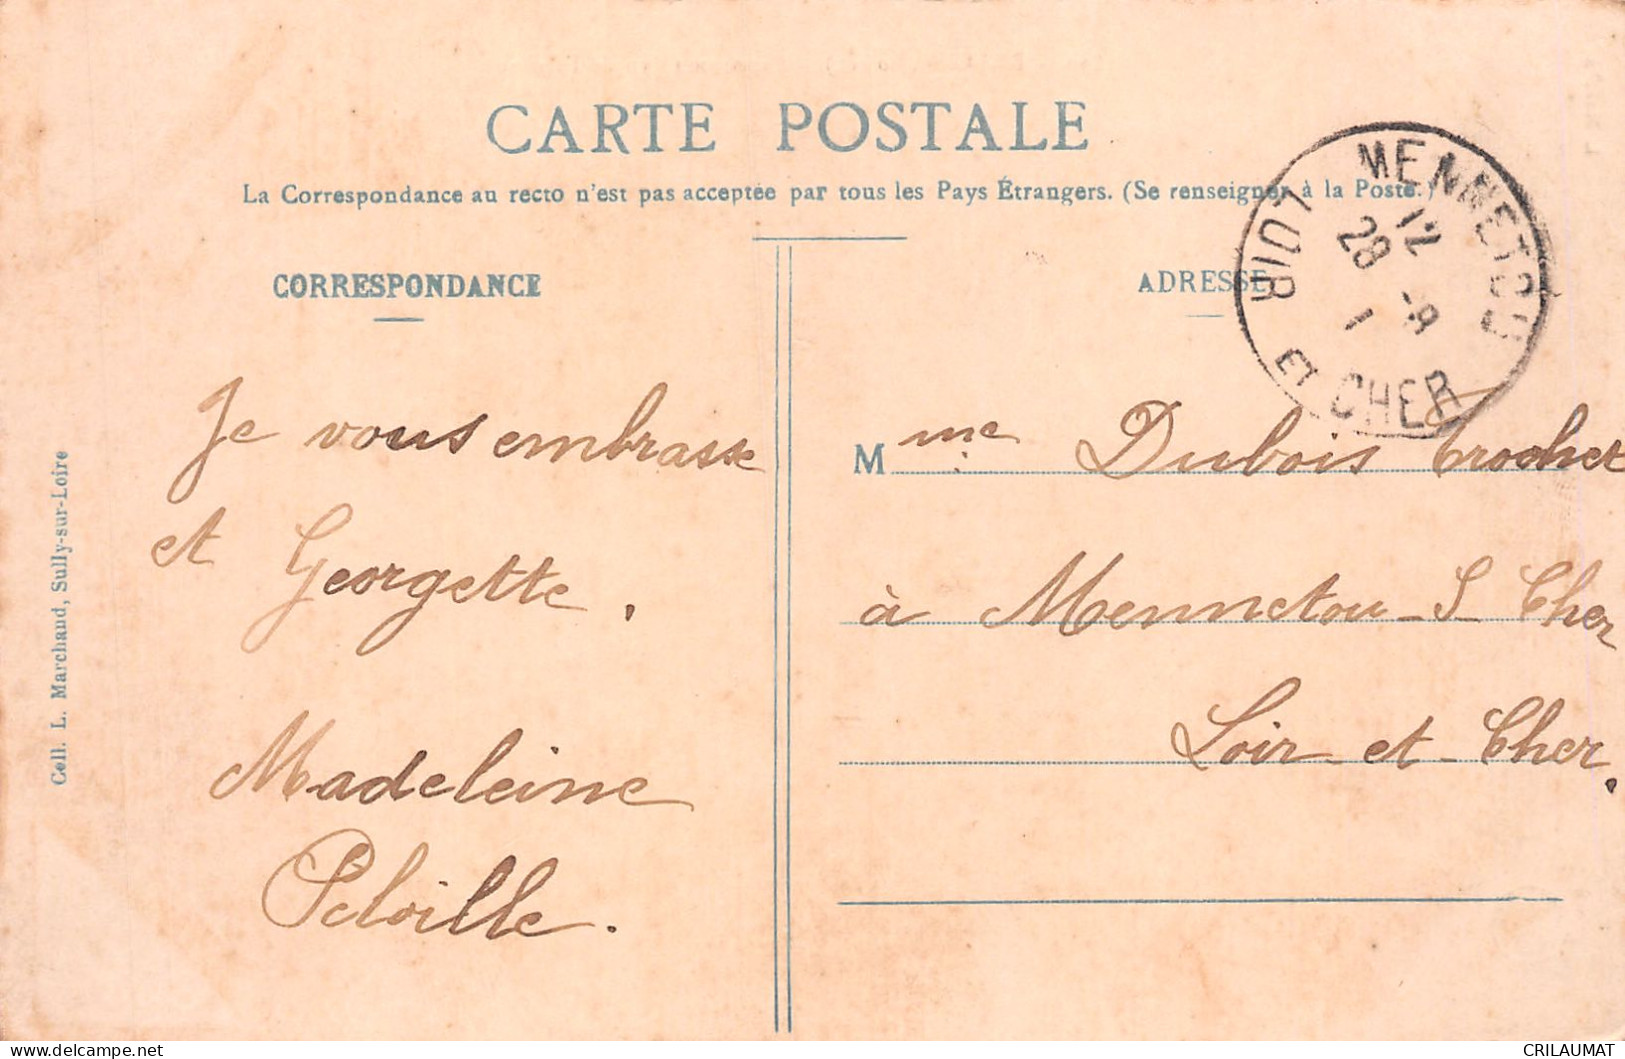 CARTE POSTALE
La Correspondance au recto n'est pas acceptée par tous les Pays Étrangers. (Se renseigner à la Poste.)
CORRESPONDANCE
Je vous embrasse
et Georgette.
Madeleine
Peloille.
Coll. L. Marchand, Sully-sur-Loire
ADRESSE
MENNETOU
12
28 -8
1
LOIR ET CHER
Mme Dubois Crochet
à Mennetou-S-Cher
Loir-et-Cher.
CRILAUMAT